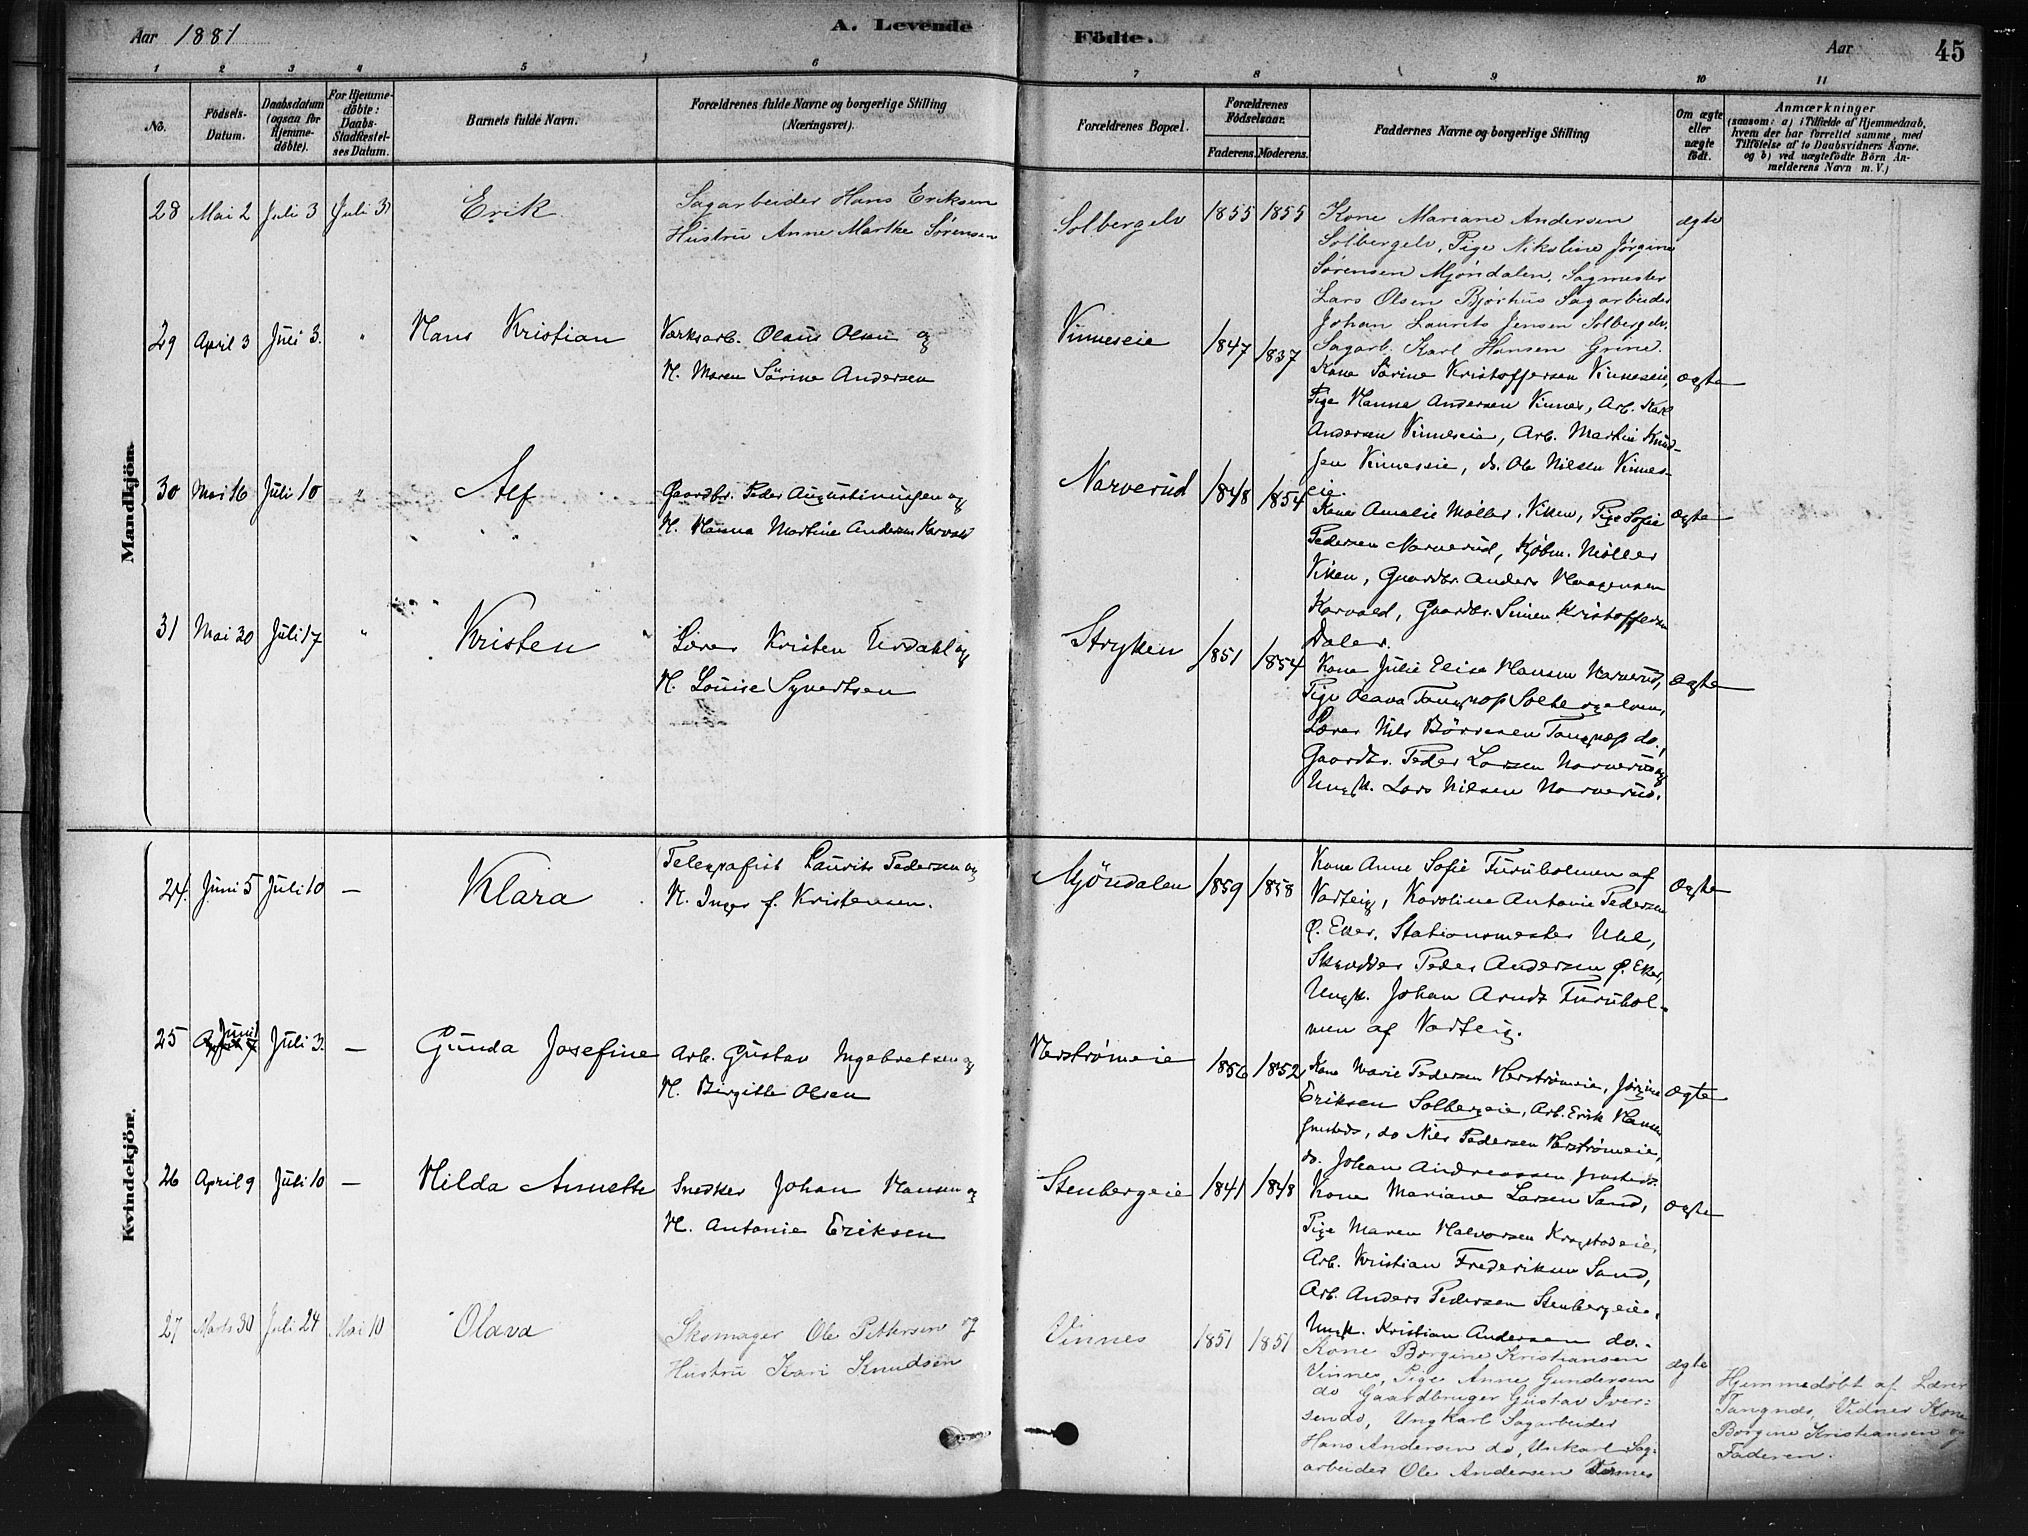 Aar 1881
A. Levende
Födte.
Aar
45
1 2 3 4 5 6 7 8 9 10 11
No.
Födsels-
Datum.
Daabsdatum
(ogsaa for
Hjemme-
döbte).
For Hjemme-
döbte:
Daabs-
Stadfæstel-
ses Datum.
Barnets fulde Navn.
Forældrenes fulde Navne og borgerlige Stilling
(Næringsvei).
Forældrenes Bopæl.
Forældrenes
Födselsaar.
Faderens.
Moderens.
Faddernes Navne og borgerlige Stilling
Om ægte
eller
uægte
födt.
Anmærkninger
(saasom: a) i Tilfælde af Hjemmedaab,
hvem der har forrettet samme, med
Tilföielse af to Daabsvidners Navne.
og b) ved uægtefödte Börn An-
melderens Navn m. V.)
Mandkjön.
28 Mai 2 Juli 3 Juli 3 Erik
Sagarbeider Hans Eriksen
Hustru Anne Marthe Sørensen
Solbergelv 1855 1855
Kone Mariane Andersen
Solbergelv, Pige Nikoline Jørgine
Sørensen Mjøndalen, Sagmester
Lars Olsen Bjørhus Sagarbeider
Johan Laurits Jensen Solbergelv.
Sagarb. Karl Hansen Grine.
ægte
29 April 3 Juli 3. " Hans Kristian
Værksarb. Olaus Olsen og
H. Maren Sörine Andersen
Vinneseie 1847 1837
Kone Sörine Kristoffersen Vinneseie,
Pige Hanna Andersen Vinnes, Arb. Karl
Andersen Vinneseie, Arb. Martin Knud-
sen Vinneseie, do. Ole Nilsen Vinnes-
eie.
ægte
30 Mai 16 Juli 10 " Alf
Gaardbr. Peder Augustinussen og
H. Hanna Martine Andersen Korvald
Narverud 1848 1854
Kone Amalie Møller, Viken, Pige Sofie
Pedersen Narverud, Kjøbm. Møller
Viken, Gaardbr. Anders Haagensen
Korvald, Gaardbr. Simen Kristoffersen
Daler.
ægte
31 Mai 30 Juli 17 " Kristen
Lærer Kristen Urdahl og
H. Louise Syvertsen
Stryken 1851 1854
Kone Julie Elise Hansen Narverud,
Pige Olava Tangnæs Solbergelven,
Lærer Nils Børresen Tangnæs do.,
Gaardbr. Peder Larsen Narverud og
Ungk. Lars Nilsen Narverud.
ægte
Kvindekjön.
24. Juni 5 Juli 10 — Klara
Telegrafist Laurits Pedersen og
H. Inger f. Kristensen.
Mjöndalen 1859 1858
Kone Anne Sofie Furuholmen af
Varteig, Karoline Antonie Pedersen
Ø. Eker, Stationsmester Uhl,
Skrædder Peder Andersen Ø. Eker,
Ungk. Johan Arndt Furuhol-
men af Varteig.
ægte
25 Juni 1 Juli 3. — Gunda Josefine
Arb. Gustav Ingebretsen og
H. Birgitte Olsen
Herstrømeie 1856 1852
Kone Marie Pedersen Herstrømeie, Jörgine
Eriksen Solbergeie, Arb. Erik Hansen
do Nils Pedersen Herstrømeie,
do. Johan Andreassen
ægte
26 April 9 Juli 10 — Hilda Annette
Snedker Johan Hansen og
H. Antonie Eriksen
Stenbergeie 1841 1848
Kone Mariane Larsen Sand,
Pige Maren Halvorsen Krogstadeie,
Arb. Kristian Frederiksen Sand,
Arb. Anders Pedersen Stenbergeie,
Ungk. Kristian Andersen do.
ægte
27 Marts 30 Juli 24 Mai 10 Olava
Skomager Ole Pettersen og
Hustru Kari Knudsen
Vinnes 1851 1851
Kone Borgine Kristiansen
Vinnes, Pige Anne Gundersen
do Gaardbruger Gustav Iver-
sen do, Ungkarl Sagarbeider
Hans Andersen do, Unkarl Sag-
arbeider Ole Andersen
ægte
Hjemmedøbt af Lærer
Tangnæs, Vidner Kone
Borgine Kristiansen og
Faderen.